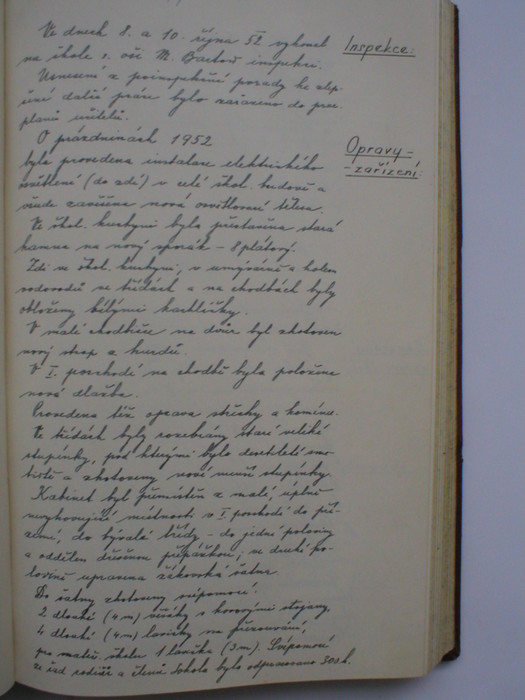 Ve dnech 8. a 10. října 52 vykonal
na škole s. oši M. Bartoš inspekci.
Inspekce:
Usnesení z poinspekční porady ke zlep-
šení další práce bylo zařazeno do prac.
plánu učitelů.
O prázdninách 1952
Opravy -
- zařízení:
byla provedena instalace elektrického
osvětlení (do zdí) v celé škol. budově a
všude zavěšena nová osvětlovací tělesa.
Ve škol. kuchyni byla přestavěna stará
kamna na nový sporák - 8 plátový.
Zdi ve škol. kuchyni, v umývárně a kolem
vodovodů ve třídách a na chodbách byly
obloženy bílými kachlíčky.
V malé chodbičce na dvůr byl zhotoven
nový strop z
V I. poschodí na chodbě byla položena
nová dlažba.
Provedena též oprava střechy a komína.
Ve třídách byly rozebrány staré veliké
stupínky, pod kterými bylo desítiletí sme-
tiště a zhotoveny nové menší stupínky.
Kabinet byl přemístěn z malé, úplně
nevyhovující místnosti v I. poschodí do pří-
zemí, do bývalé třídy - do jedné poloviny
a oddělen dřevěnou přepážkou; ve druhé po-
lovině upravena žákovská šatna.
Do šatny zhotoveny svépomocí:
2 dlouhé (4 m) věšáky s kovovými stojany,
4 dlouhé (4 m) lavičky na přezouvání,
pro mateř. školu 1 lavička (3 m). Svépomocí
ze řad rodičů a členů Sokola bylo odpracováno 300 h.